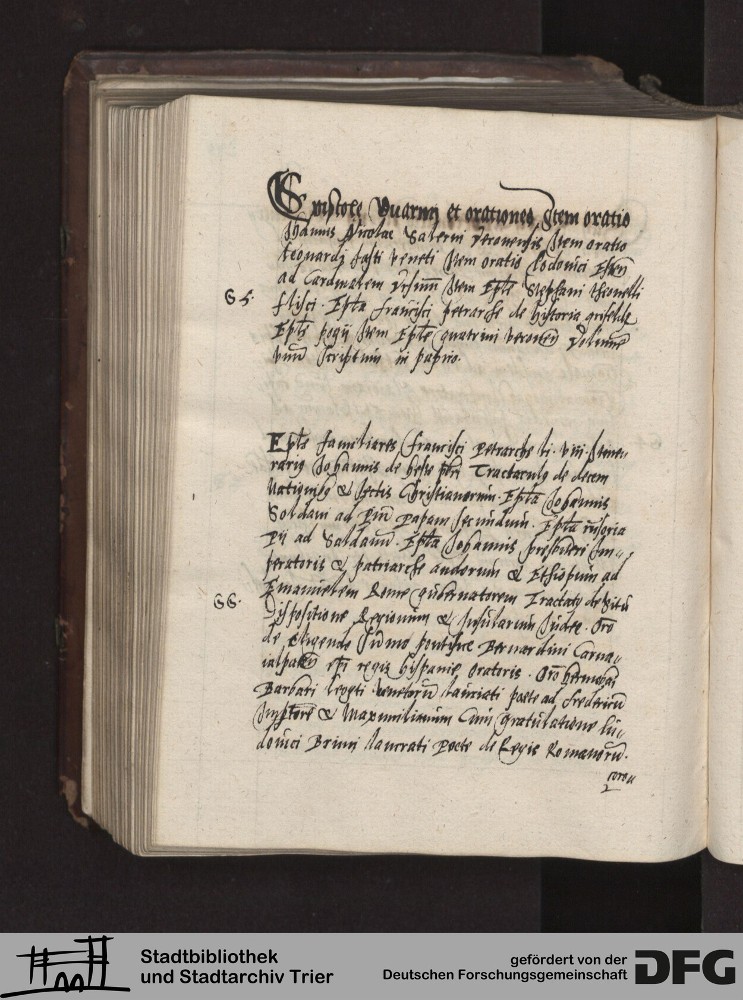 Epistole Guarini et orationes Item oratio
Johannis Nicolae Salerni veronensis Item oratio
Leonardi Justi veneti Item oratio Lodouici
ad Cardinalem Item Eptē Stephani
65.
flisci. Epta francisci petrarche de historia griselde
Eptē pogii Item Eptē guarini veronēn Volumē
vnū scriptum in papiro.
Eptē familiares francisci Petrarche li. viii. Itene„
rariꝰ Johannis de hese pb̄ri Tractatulꝰ de decem
Nationibꝰ & sectis Christianorum. Epta Johannis
Soldani ad Piū papam secundum. Epta
Pii ad Soldanū. Epta Johannis presbiteri Im„
peratoris & patriarche andorum & Ethiopum ad
Emanuelem Rome gubernatorem Tractatꝰ de situ
66.
dispositione Regionum & Insularum Indie. Orō
de eligendo sūmo pontifice Bernardini Carua„
regis hispanie oratoris. Orō hermolai
Barbari legati venetorū laureati poete ad fredericū
Impŕorē & Maximilianum Cum gratulatione lu„
douici Bruni laureati Poete de Regis Romanorū.
coro„
Stadtbibliothek
und Stadtarchiv Trier
gefördert von der
Deutschen Forschungsgemeinschaft
DFG